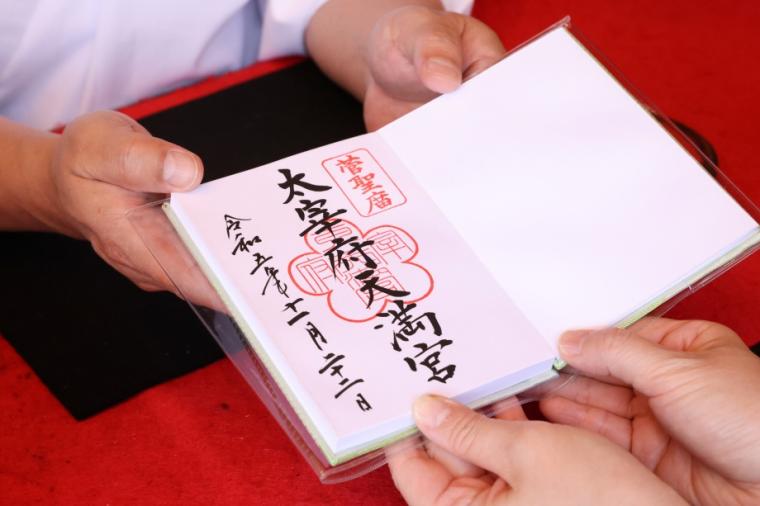 菅聖庿
太宰府天満宮
令和五年十一月二十二日